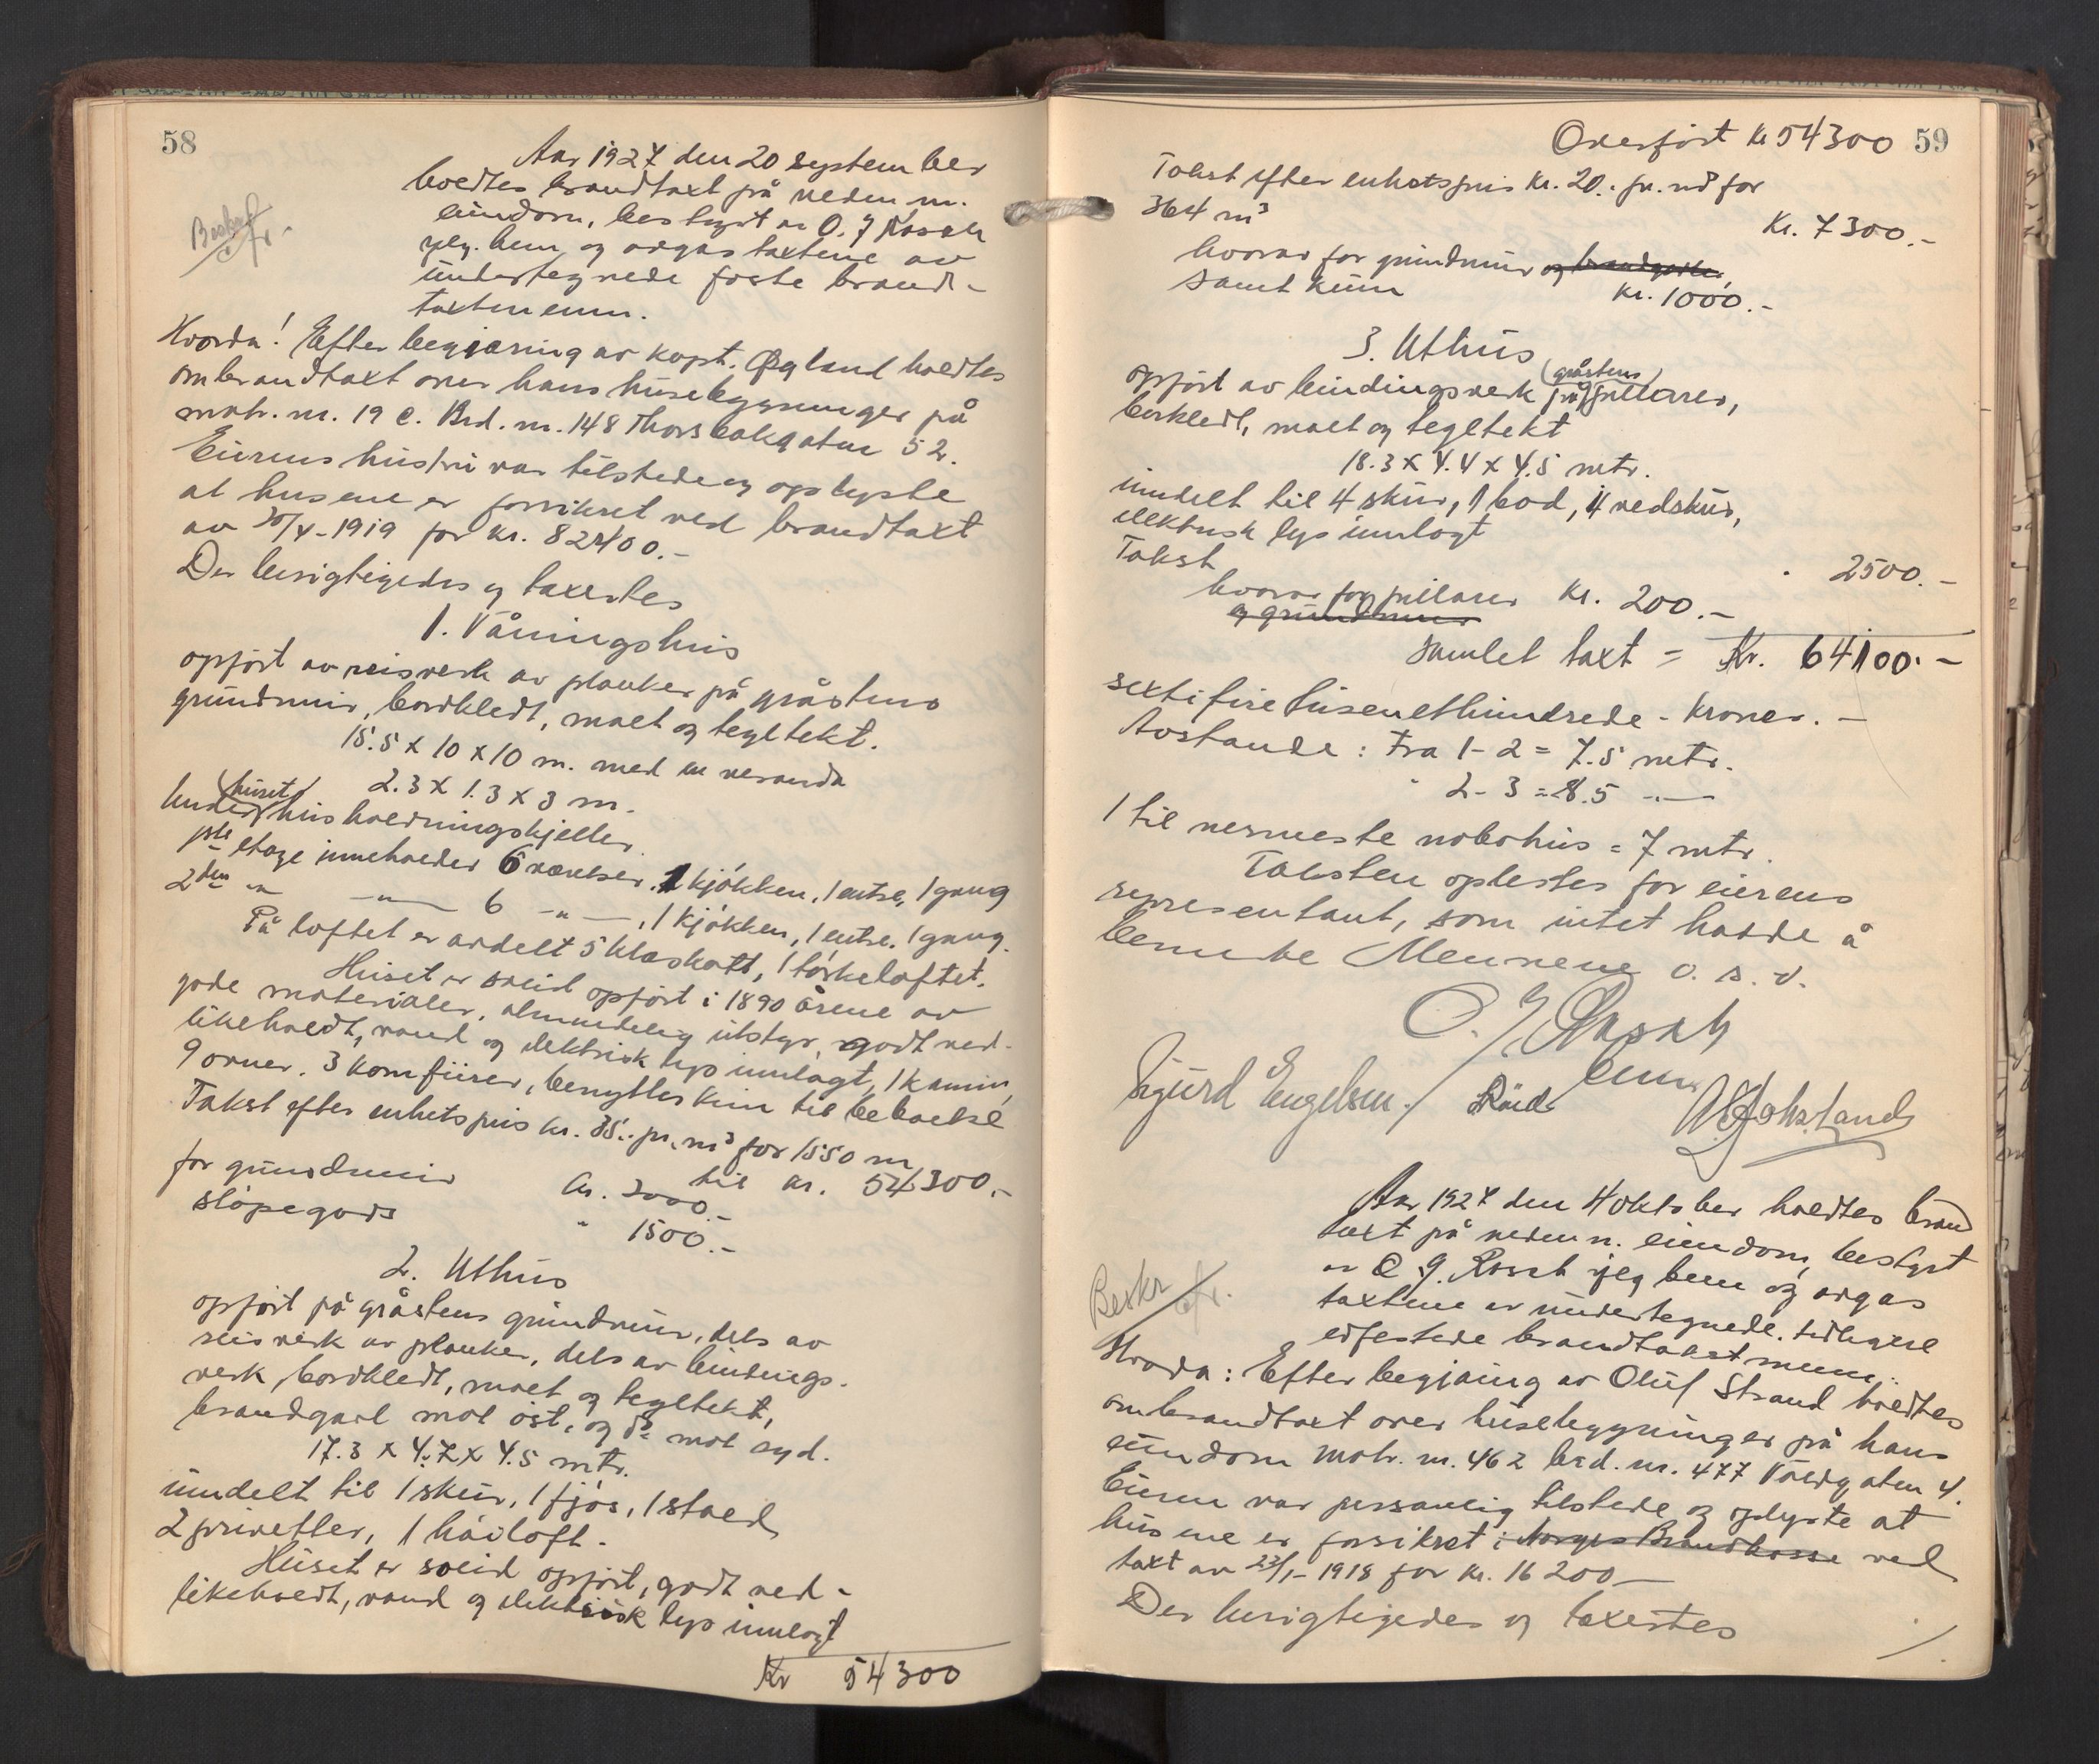 58
Beskr
fr.
Aar 1927 den 20 september
holdtes brandtaxt på nedenn.
eiendom, bestyrt av O. J Rasch
ved lensm. og avgas taxtene av
undertegnede faste brand-
taxtmenn.
Hvorda! Efter begjæring av kapt. Øgland holdtes
ombrandtaxt over hans husebygninger på
matr. nr. 19 c. Brd. nr. 148 Thorsbakgaten 52.
Eierens hustru var tilstede og oplyste
at husene er forsikret ved brandtaxt
av 20/5-1919 for kr. 82400.-
Der besigtigedes og taxertes
1. Våningshus
opført av reisverk av planker på gråstens
grundmur, bordkledt, malt og tegltekt.
15.5 x 10 x 10 m. med en veranda
2.3 x 1.3 x 3 m.
Under huset husholdningskjeller.
1ste etage inneholder 6 værelser. 1 kjøkken, 1 entre, 1 gang
2den -"- -"- 6 -"-, 1 kjøkken, 1 entre. 1 gang.
På loftet er avdelt 5 klæskott, 1 tørkeloftet.
Huset er solid opført i 1890 årene av
gode materialer, almindelig utstyr, godt ved-
likeholdt, vand og elektrisk lys innlagt, 1 kamin,
9 ovner. 3 komfürer, benyttes kun til beboelse
Takst efter enhetspris kr. 35.- pr. m³ for 1550 m
til kr. 54300.-
for grundmur kr. 2000.-
støpegods " 1500.-
2. Uthus
opført på gråstens grundmur, dels av
reisverk av planker, dels av bindings-
verk, bordkledt, malt og tegltekt,
brandgavl mot øst, og do mot syd.
17.3 x 4.7 x 4.5 mtr.
inndelt til 1 skur, 1 fjøs, 1 stald
2 privetter, 1 høiloft.
Huset er solid opført, godt ved-
likeholdt, vand og elektrisk lys innlagt
Kr 54300
Overført kr 54300 59
Takst efter enhetspris kr. 20.- pr. m³ for
364 m³
Kr. 7300.-
hvorav for grundmur og brandgavler,
samt kum kr. 1000.-
3. Uthus
opført av bindingsverk på (gråstens) pillarer,
bordkledt, malt og tegltekt
18.3 x 4.4 x 4.5 mtr.
inndelt til 4 skur, 1 bod, 4 vedskur,
elektrisk lys innlagt
Takst " 2500.-
hvorav for pillarer kr. 200.-
og grundmur
Samlet taxt = Kr. 64100.-
sextifiretusenethundrede - Kroner.-
Avstande: Fra 1-2 = 7.5 mtr.
" 2-3 = 8.5 -"-
1 til nermeste nabohus = 7 mtr.
Taksten oplestes for eierens
representant, som intet hadde å
bemerke Mennene o. s. v.
O. J Rasch
Sigurd Engelsen.
Aar 1927 den 4 oktober holdtes brand
taxt på nedenn. eiendom, bestyrt
av O. J. Rasch ved lensm og avgas
taxtene av undertegnede. tidligere
edfestede brandtakstmenn.
Beskr
fr.
Hvorda: Efter begjæing av Oluf Strand holdtes
ombrandtaxt over husebygninger på hans
eiendom matr. nr. 462 brd. nr. 477 Voldgaten 4.
Eieren var personlig tilstede og oplyste at
husene er forsikret i Norges Brandkasse ved
taxt av 23/1-1918 for kr. 16200-
Der besigtigedes og taxertes